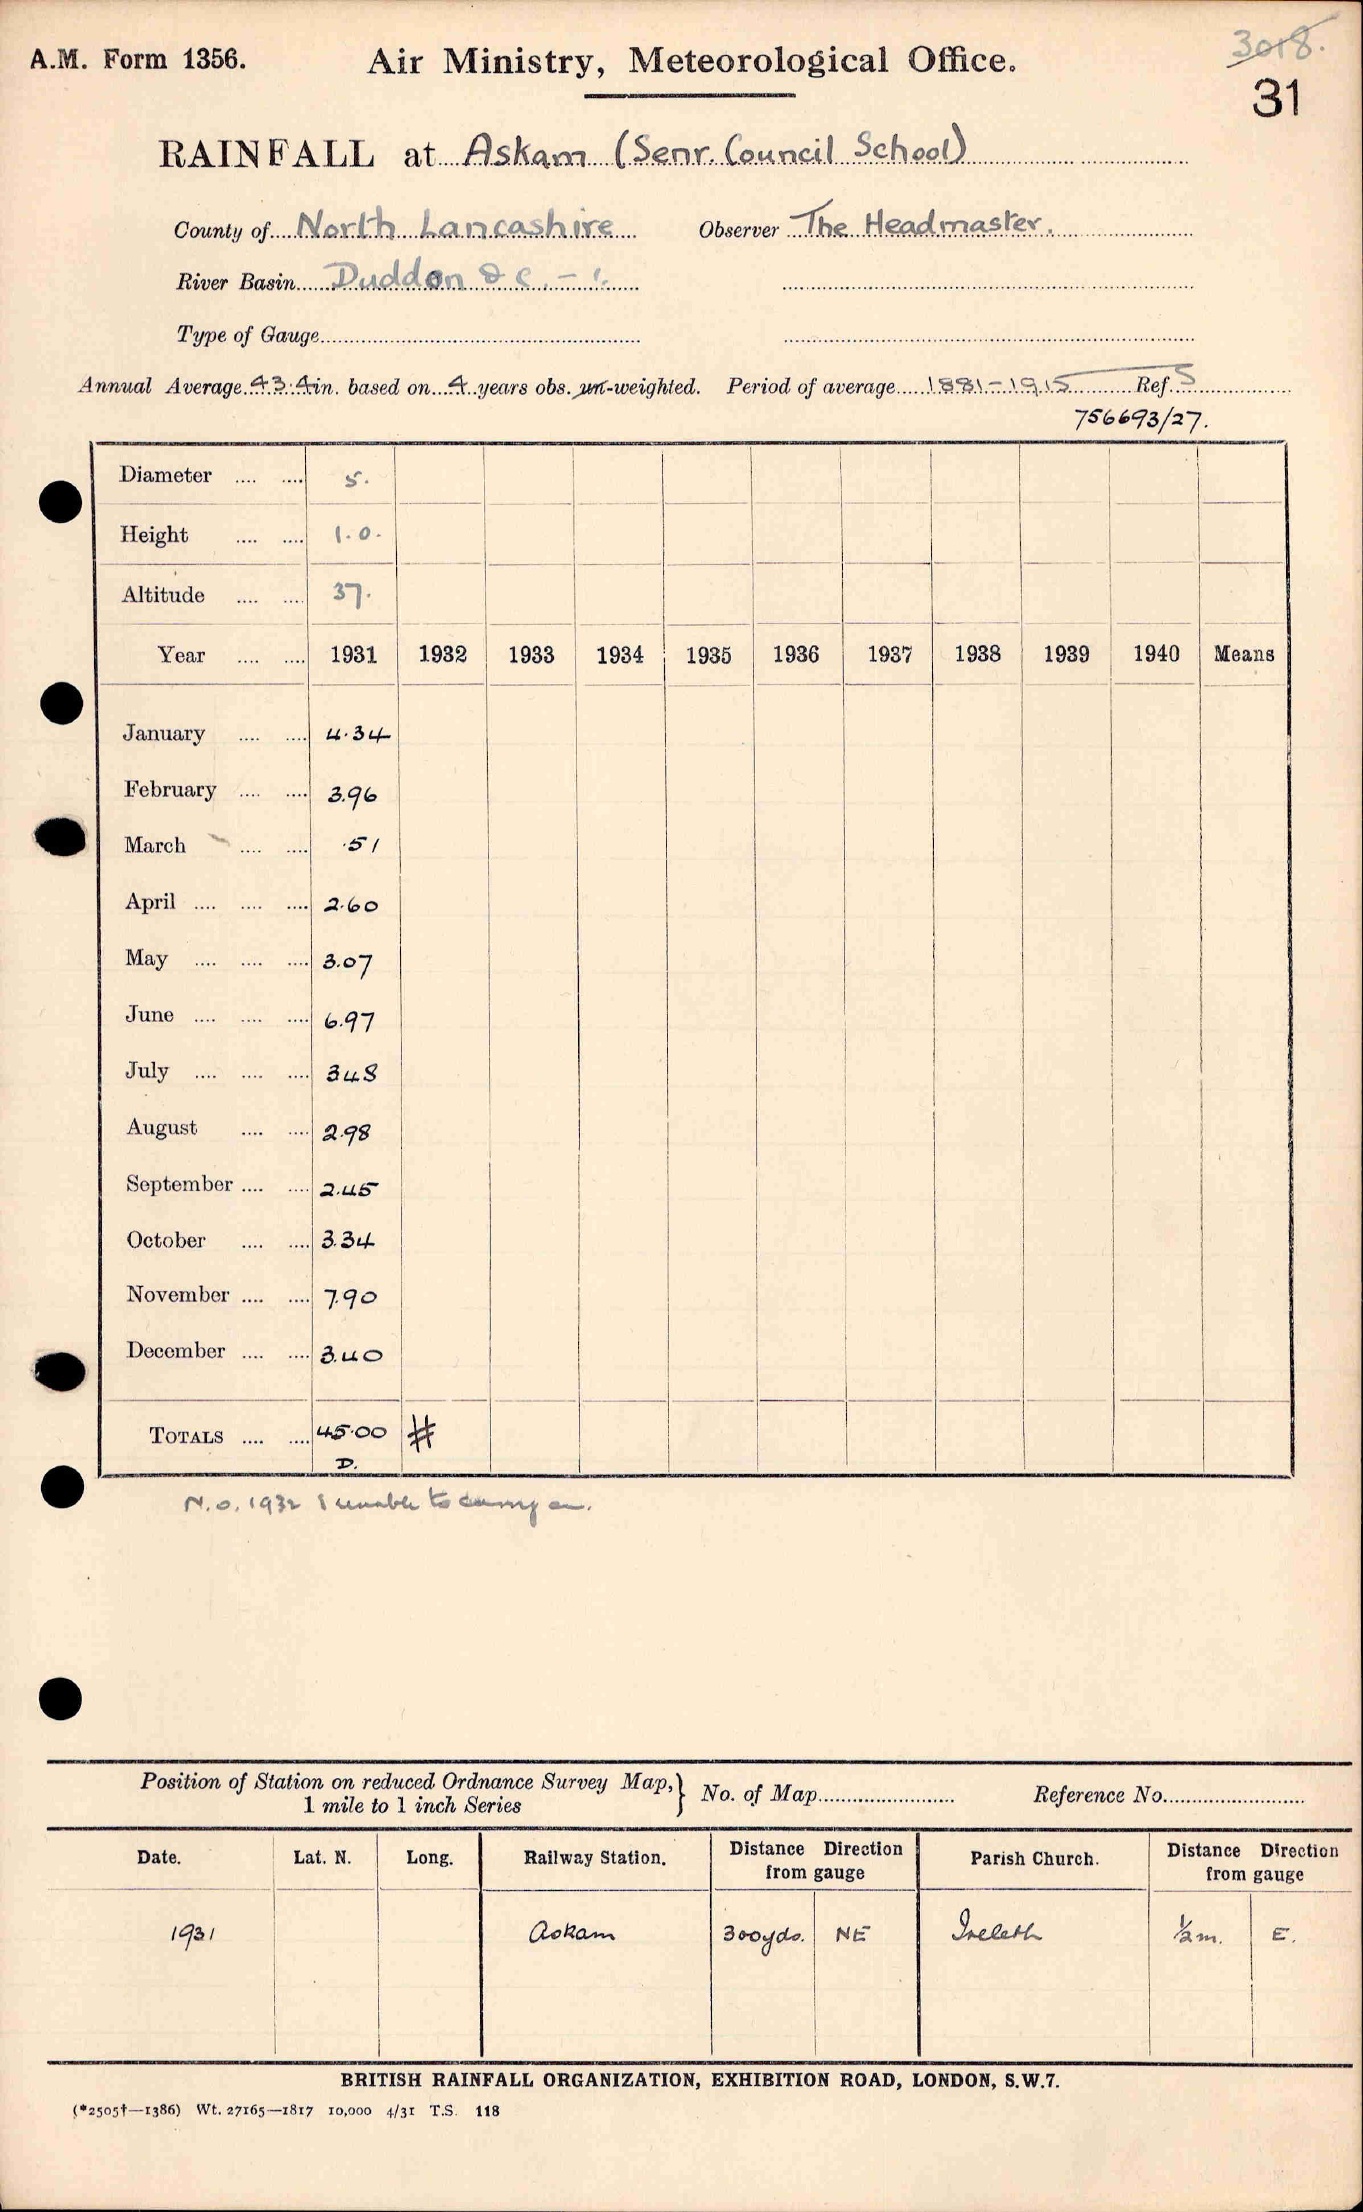 3018.
A.M. Form 1356. Air Ministry, Meteorological Office.
31
RAINFALL at Askam (Senr. Council School)
County of North Lancashire Observer The Headmaster.
River Basin Duddon &c.
Type of Gauge
Annual Average 43.4 in. based on 4 years obs. un-weighted. Period of average 1881-1915 Ref. S
756693/27.
Diameter .... .... 5.
Height .... .... 1.0.
Altitude .... .... 37.
Year .... .... 1931 1932 1933 1934 1935 1936 1937 1938 1939 1940 Means
January .... .... 4.34
February .... .... 3.96
March .... .... .51
April .... .... .... 2.60
May .... .... .... 3.07
June .... .... .... 6.97
July .... .... .... 3 48
August .... .... 2.98
September .... .... 2.45
October .... .... 3.34
November .... .... 7.90
December .... .... 3.40
TOTALS .... .... 45.00 #
D.
N.o. 1932 & unable to carry on.
Position of Station on reduced Ordnance Survey Map, } No. of Map Reference No.
1 mile to 1 inch Series
Date. Lat. N. Long. Railway Station. Distance Direction from gauge Parish Church. Distance Direction from gauge
1931 Askam 300yds. NE Ireleth ½m. E.
BRITISH RAINFALL ORGANIZATION, EXHIBITION ROAD, LONDON, S.W.7.
(*2505†—1386) Wt. 27165—1817 10,000 4/31 T.S. 118